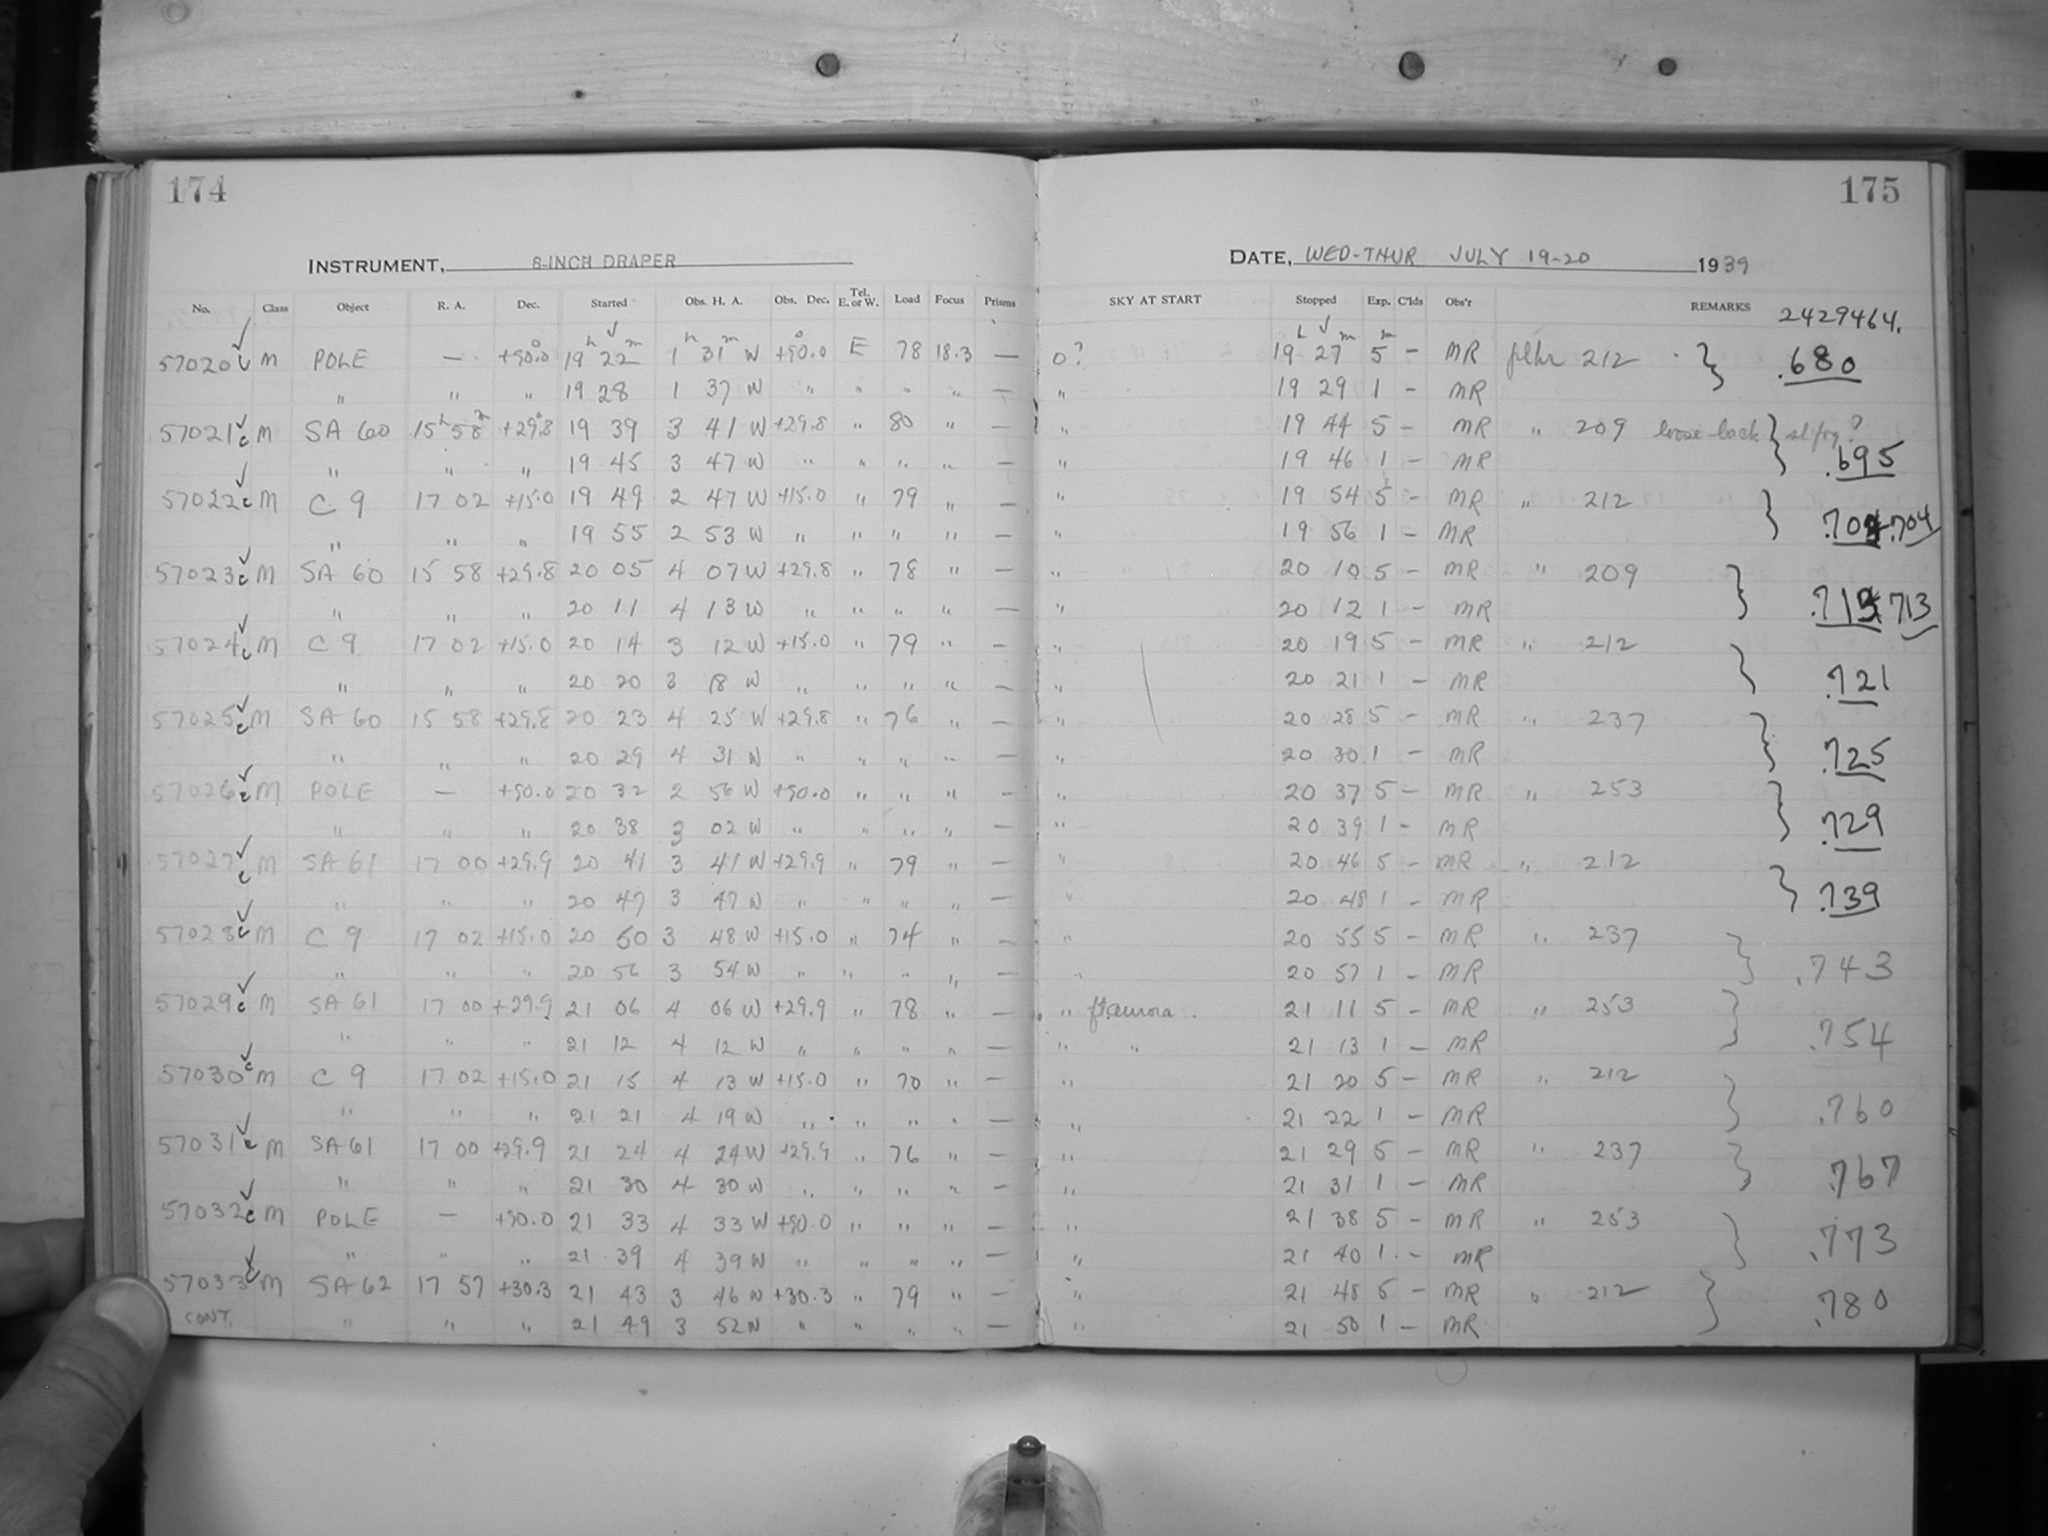 174
175
INSTRUMENT, 8-INCH DRAPER
DATE, WED-THUR JULY 19-20 1939
No. Class Object R. A. Dec. Started Obs. H. A. Obs. Dec. Tel. E. or W. Load Focus Prisms SKY AT START Stopped Exp. C'lds Obs'r REMARKS 2429464.
57020 M POLE — +90.0° 19h 22m 1h 31m W +90.0° E 78 18.3 — 0? 19h 27m 5m — MR filter 212 } .680
" " " 19 28 1 37 W " " " " — " 19 29 1 — MR
57021 c M SA 60 15h 58m +29.8° 19 39 3 41 W +29.8 " 80 " — " 19 44 5 — MR " 209 loose back } sl fog?
" " " 19 45 3 47 W " " " " — " 19 46 1 — MR .695
57022 c M C 9 17 02 +15.0 19 49 2 47 W +15.0 " 79 " — " 19 54 5 — MR " 212 }
" " " 19 55 2 53 W " " " " — " 19 56 1 — MR .704
57023 c M SA 60 15 58 +29.8 20 05 4 07 W +29.8 " 78 " — " 20 10 5 — MR " 209 }
" " " 20 11 4 13 W " " " " — " 20 12 1 — MR 713
57024 c M C 9 17 02 +15.0 20 14 3 12 W +15.0 " 79 " — " 20 19 5 — MR " 212 }
" " " 20 20 3 18 W " " " " — " 20 21 1 — MR .721
57025 c M SA 60 15 58 +29.8 20 23 4 25 W +29.8 " 76 " — " 20 28 5 — MR " 237 }
" " " 20 29 4 31 W " " " " — " 20 30 1 — MR .725
57026 c M POLE — +90.0 20 32 2 56 W +90.0 " " " — " 20 37 5 — MR " 253 }
" " " 20 38 3 02 W " " " " — " 20 39 1 — MR .729
57027 c M SA 61 17 00 +29.9 20 41 3 41 W +29.9 " 79 " — " 20 46 5 — MR " 212
" " " 20 47 3 47 W " " " " — " 20 48 1 — MR } .739
57028 c M C 9 17 02 +15.0 20 50 3 48 W +15.0 " 74 " — " 20 55 5 — MR " 237 }
" " " 20 56 3 54 W " " " " — " 20 57 1 — MR .743
57029 c M SA 61 17 00 +29.9 21 06 4 06 W +29.9 " 78 " — " ft aurora. 21 11 5 — MR " 253 }
" " " 21 12 4 12 W " " " " — " " 21 13 1 — MR .754
57030 c M C 9 17 02 +15.0 21 15 4 13 W +15.0 " 70 " — " 21 20 5 — MR " 212 }
" " " 21 21 4 19 W " " " " — " 21 22 1 — MR .760
57031 c M SA 61 17 00 +29.9 21 24 4 24 W +29.9 " 76 " — " 21 29 5 — MR " 237 }
" " " 21 30 4 30 W " " " " — " 21 31 1 — MR .767
57032 c M POLE — +90.0 21 33 4 33 W +90.0 " " " — " 21 38 5 — MR " 253 }
" " " 21 39 4 39 W " " " " — " 21 40 1 — MR .773
57033 c M SA 62 17 57 +30.3 21 43 3 46 W +30.3 " 79 " — " 21 48 5 — MR " 212 } .780
CONT. " " " 21 49 3 52 W " " " " — " 21 50 1 — MR